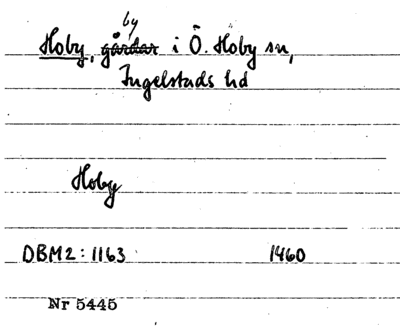 by
Hoby, gårdar i Ö. Hoby sn,
Ingelstads hd
Hoby
DBM2: 1163 1460
Nr 5445